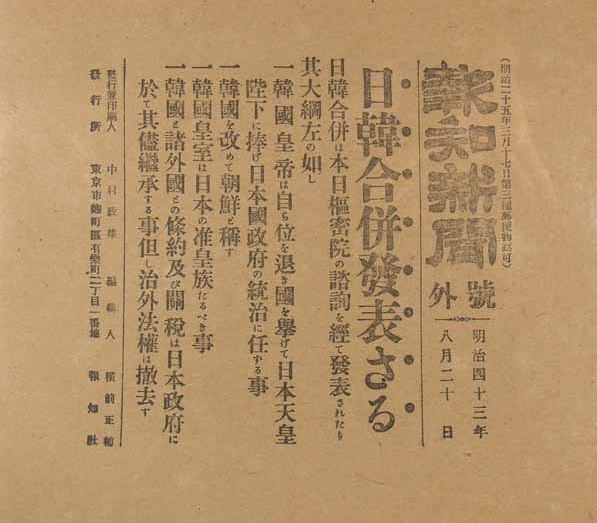 (明治二十五年三月十七日第三種郵便物認可)
報知新聞
號外
明治四十三年
八月二十日
日韓合併發表さる
日韓合併は本日樞密院の諮詢を經て發表されたり
其大綱左の如し
一韓國皇帝は自ら位を退き國を擧げて日本天皇
陛下に捧げ日本國政府の統治に任する事
一韓國を改めて朝鮮と稱す
一韓國皇室は日本の准皇族たるべき事
一韓國と諸外國との條約及び關稅は日本政府に
於て其儘繼承する事但し治外法權は撤去す
發行兼印刷人 中村政雄 編輯人 橫前正輔
發行所 東京市麴町區有樂町二丁目一番地 報知社